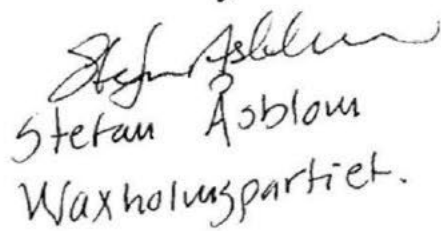 Stefan Åsblom
Stefan Åsblom
Waxholmspartiet.